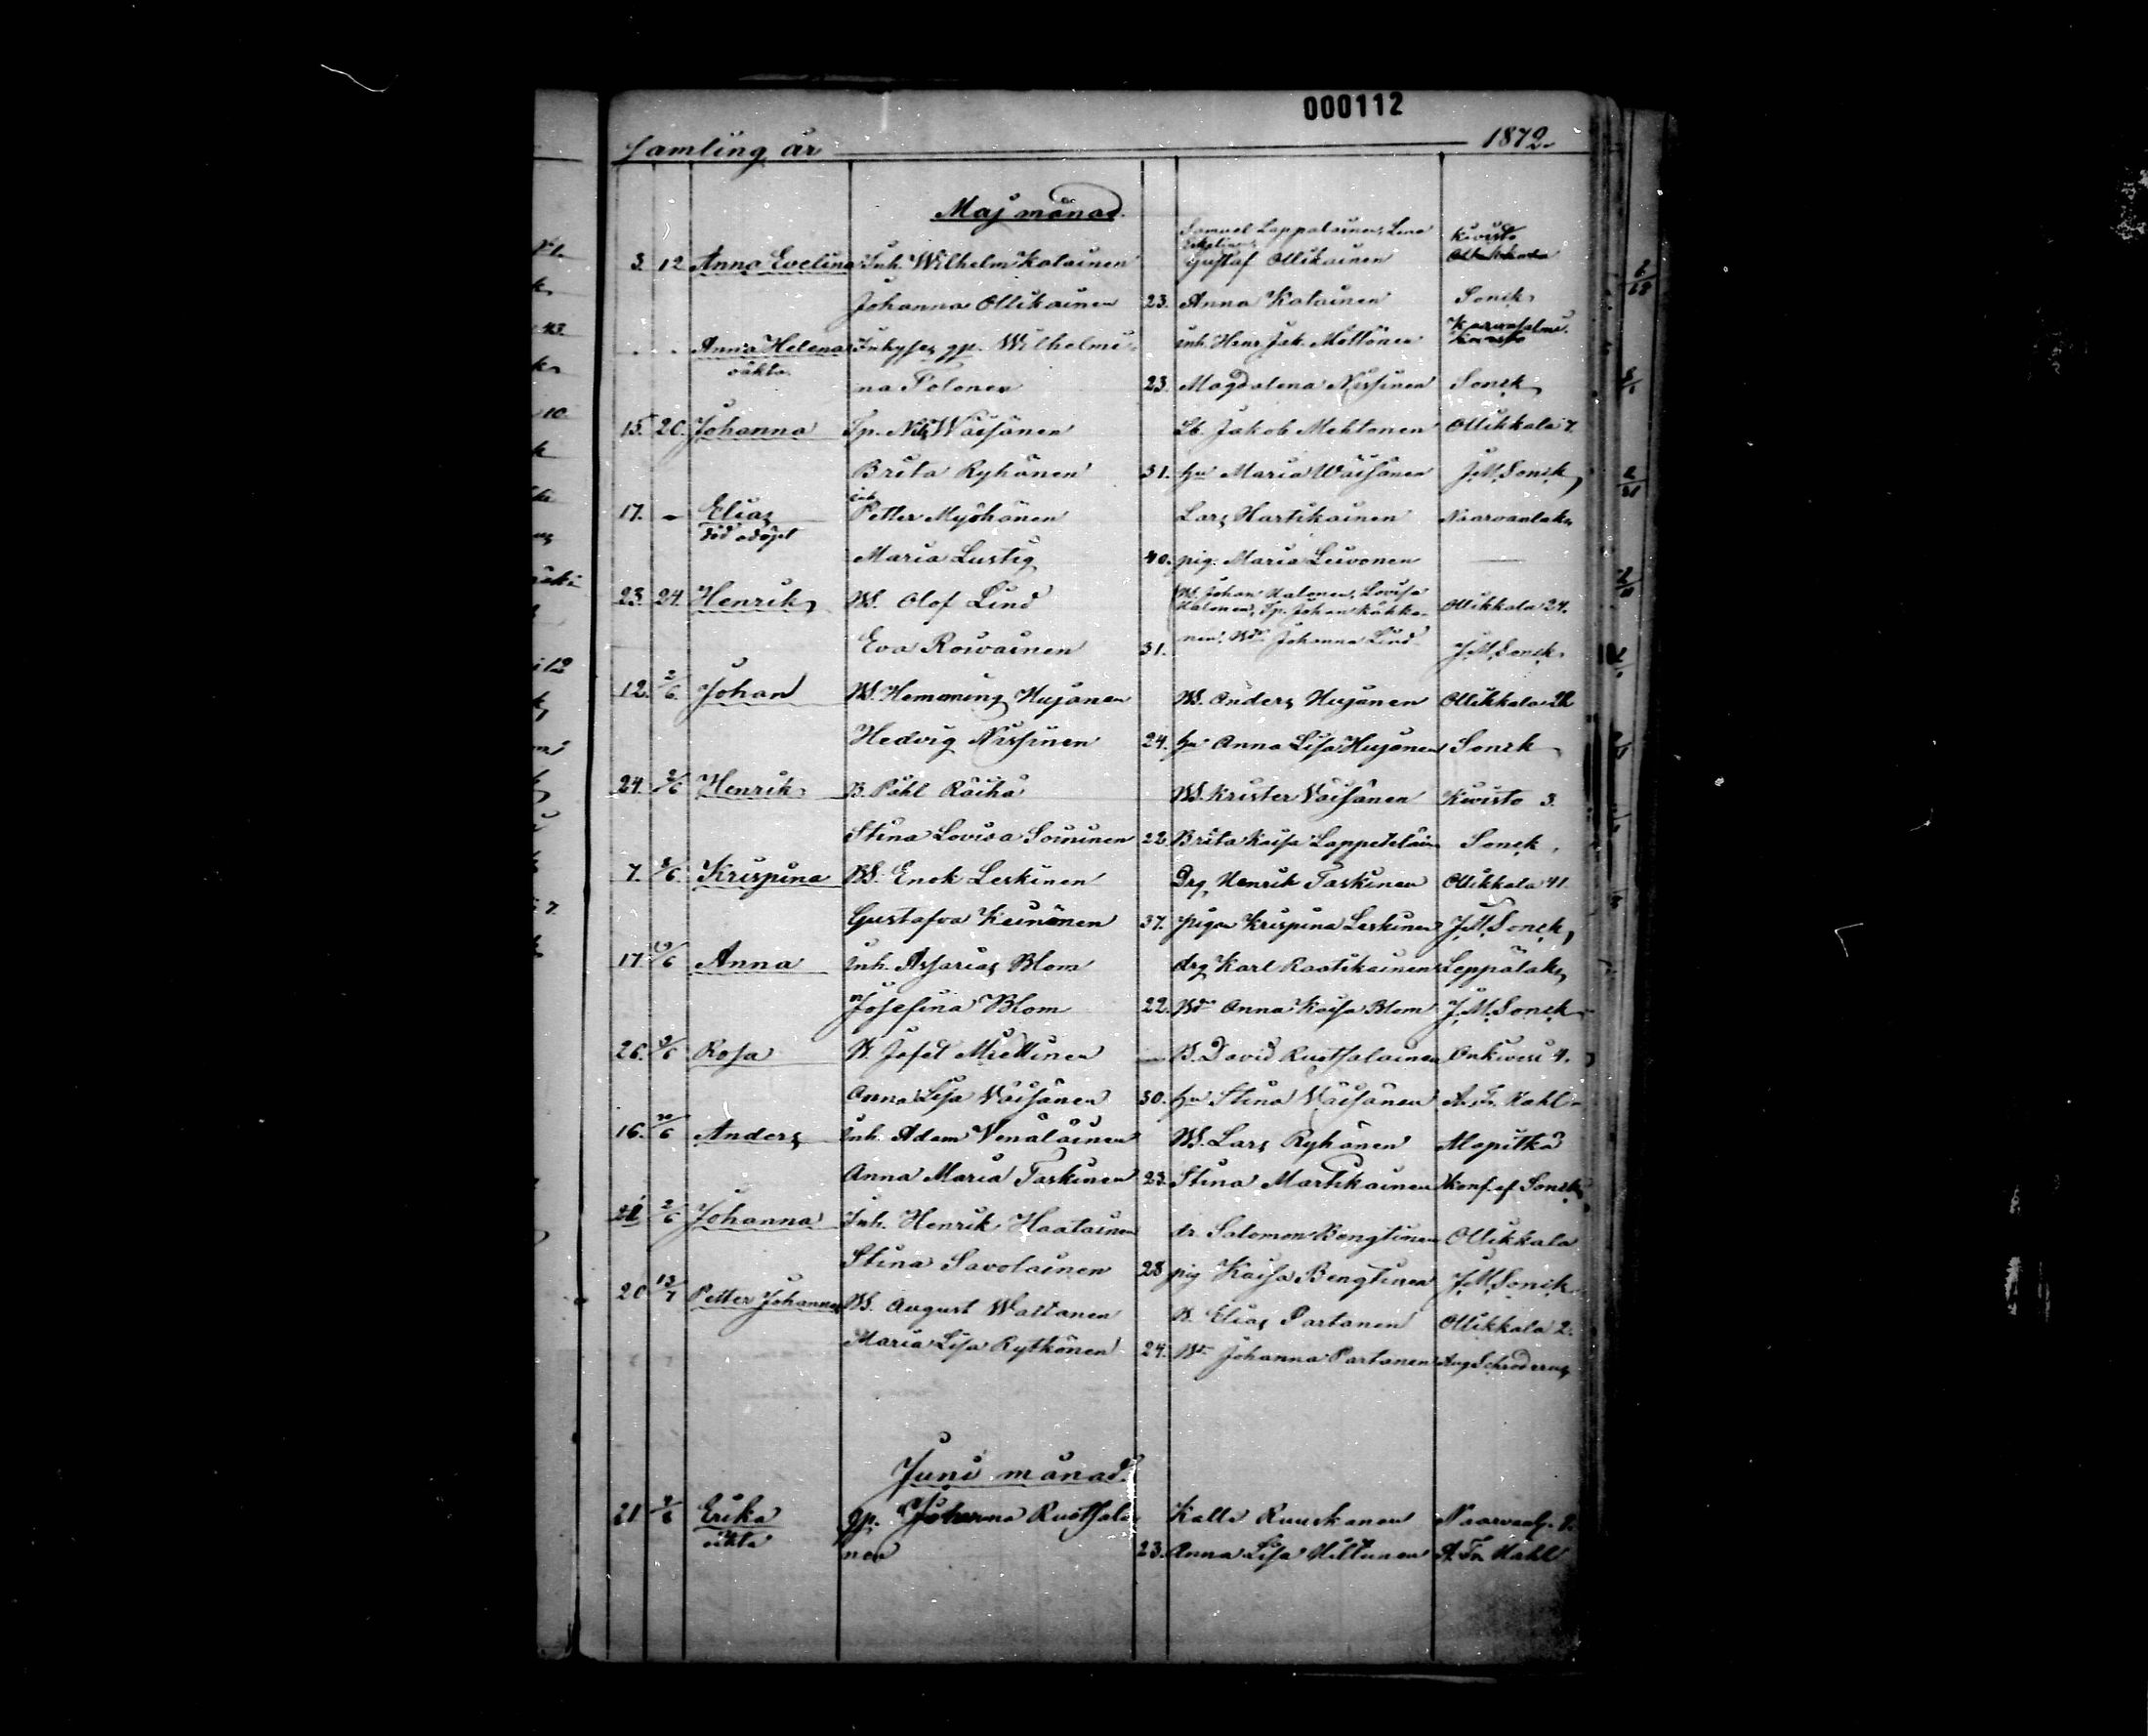 000112
samling år 1872.
Maj månad.
Samuel Lappalainen, Lena Kivisto
3. 12 Anna Evelina Inh. Wilhelm Katainen Gustaf Ollikainen
Johanna Ollikainen 23. Anna Katainen Sonck
Anna Helena Inhyses gp. Wilhelmi- inh. Henr. Jak. Möttönen
oäkta na Tolonen 23. Magdalena Nissinen Sonck
15. 20. Johanna Tp. Nils Wäisänen Lb. Jakob Mehtonen Ollikkala 7.
Brita Ryhänen 31. hu Maria Wäisänen J.M. Sonck
17. - Elias inh. Petter Myöhänen Lars Hartikainen Naarvanlaks
död odöpt Maria Lustig 40. pig. Maria Leivonen —
23. 24. Henrik W. Olof Lind W. Johan Halonen, Lovisa
Halonen, Tp. Johan Kähkö- Ollikkala 24.
Eva Roivainen 31. nen, Wdr Johanna Lind J.M. Sonck
12. 2/6 Johan W. Hemming Hujanen W. Anders Hujanen Ollikkala 22
Hedvig Nissinen 24. hu Anna Lisa Hujanen Sonck
24. 2/6 Henrik B. Påhl Räihä W. Krister Väisänen Kivisto 3.
Stina Lovisa Soininen 22 Brita Kaisa Lappeteläin Sonck
7. 8/6 Krispina W. Enok Leskinen Drg Henrik Taskinen Ollikkala 41.
Gustafva Keinänen 37. pigan Krispina Leskinen J.M. Sonck
17. 9/6 Anna Inh. Assarias Blom drg Karl Raatikainen Leppälaks
Josefina Blom 22. Wdr Anna Kaisa Blom J.M. Sonck
26. 9/6 Rosa B. Josef Miettinen B. David Ruotsalainen Onkivesi 4.
Anna Lisa Väisänen 30. hu Stina Väisänen A. Fr. Kahl
16. 20/6 Anders Inh. Adam Venäläinen W. Lars Ryhänen Mopitka
Anna Maria Taskinen 23. Stina Martikainen Konf. af Sonck
21 2/6 Johanna Inh. Henrik Haatainen dr. Salomon Bengtinen Ollikkala
Stina Savolainen 28 pig Kaisa Bengtinen J.M. Sonck
20 13/7 Petter Johannes W. August Wattanen B. Elias Partanen Ollikkala 2.
Maria Lisa Rytkönen 24. Wn Johanna Partanen Aug Schroderus
Juni månad.
21 4/6 Erika gp. Johanna Ruotsala- Kalle Ruuskanen
oäkta nen 23. Anna Lisa Hiltunen A. Fr. Kahl